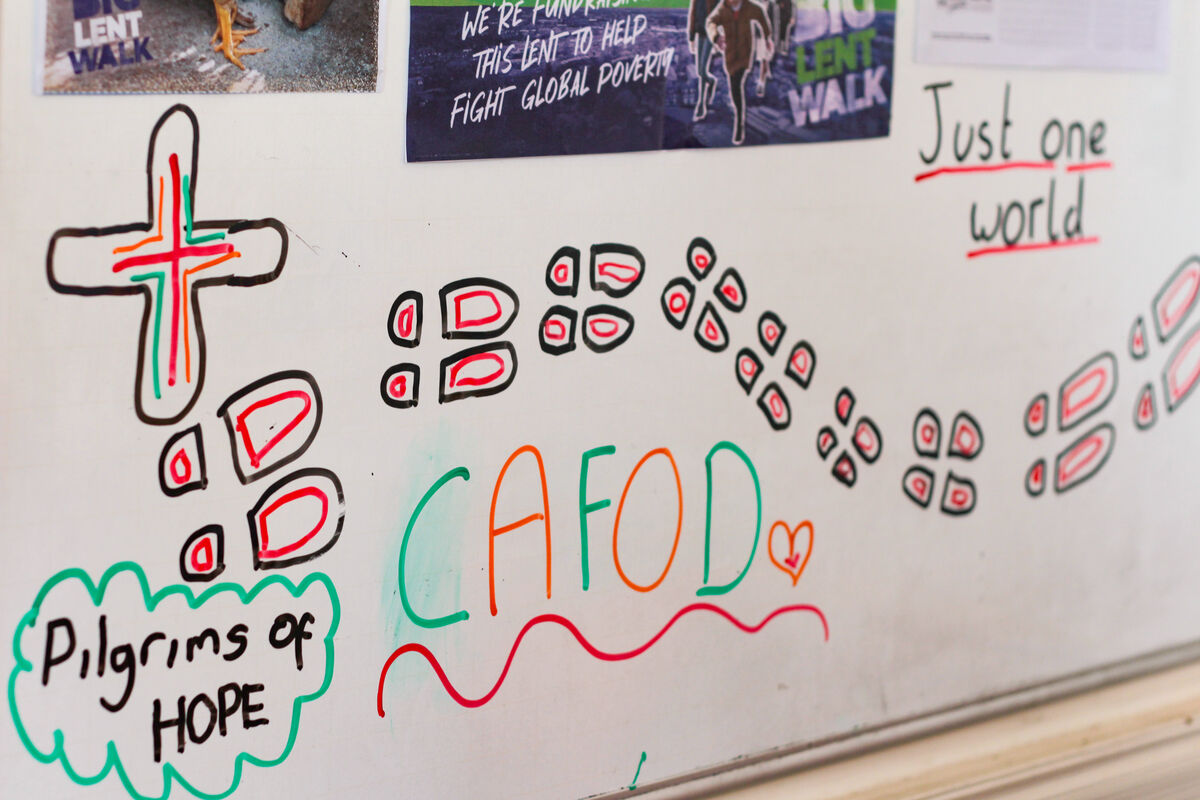 BIG
LENT
WALK
WE'RE FUNDRAISING
THIS LENT TO HELP
FIGHT GLOBAL POVERTY
BIG
LENT
WALK
Just one
world
CAFOD
Pilgrims of
HOPE